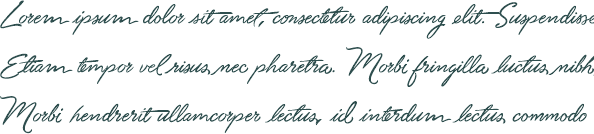 Lorem ipsum dolor sit amet, consectetur adipiscing elit. Suspendisse
Etiam tempor vel risus nec pharetra. Morbi fringilla luctus nibh
Morbi hendrerit ullamcorper lectus, id interdum lectus commodo